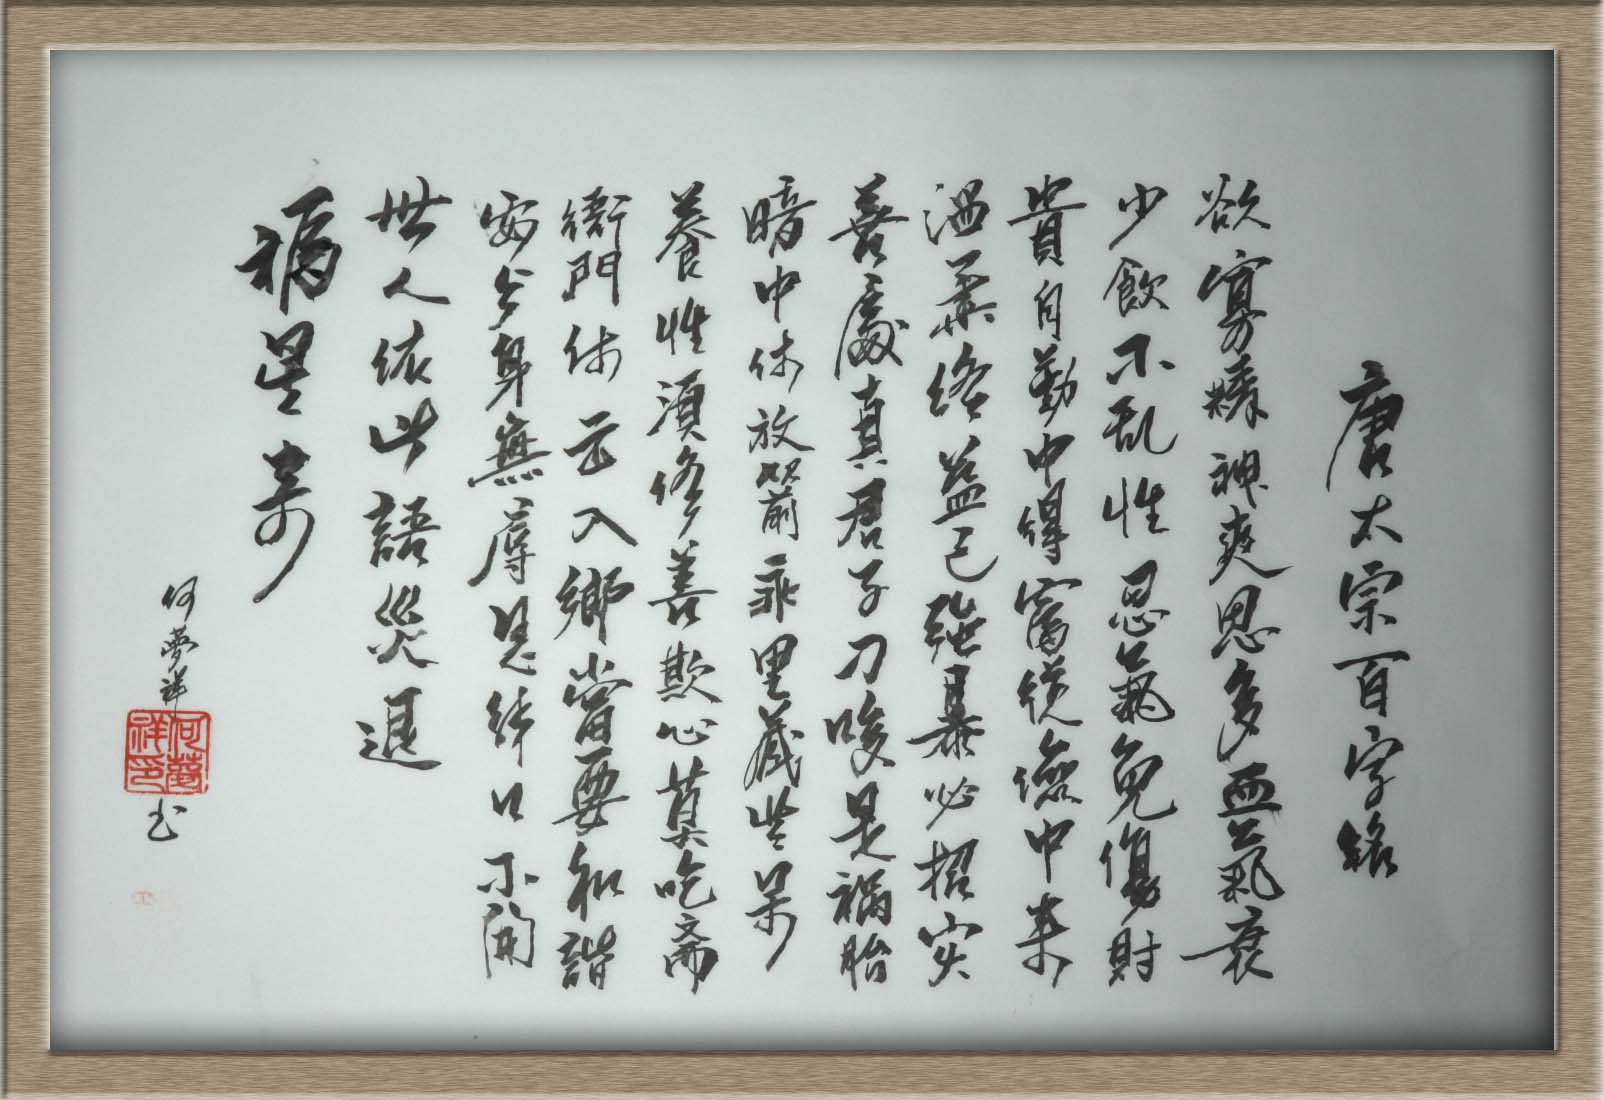 唐太宗百字銘
欲寡精神爽思多血氣衰
少飲不乱性忍氣免傷財
貴自勤中得富從儉中来
温柔終益己強暴必招灾
善處真君子刀唆是禍胎
暗中休放箭乖里藏些呆
養性須修善欺心莫吃斋
衙門休去入鄉當要和諧
安分身無辱是非口不開
世人依此語災退
福星来
何夢祥书
何夢祥印